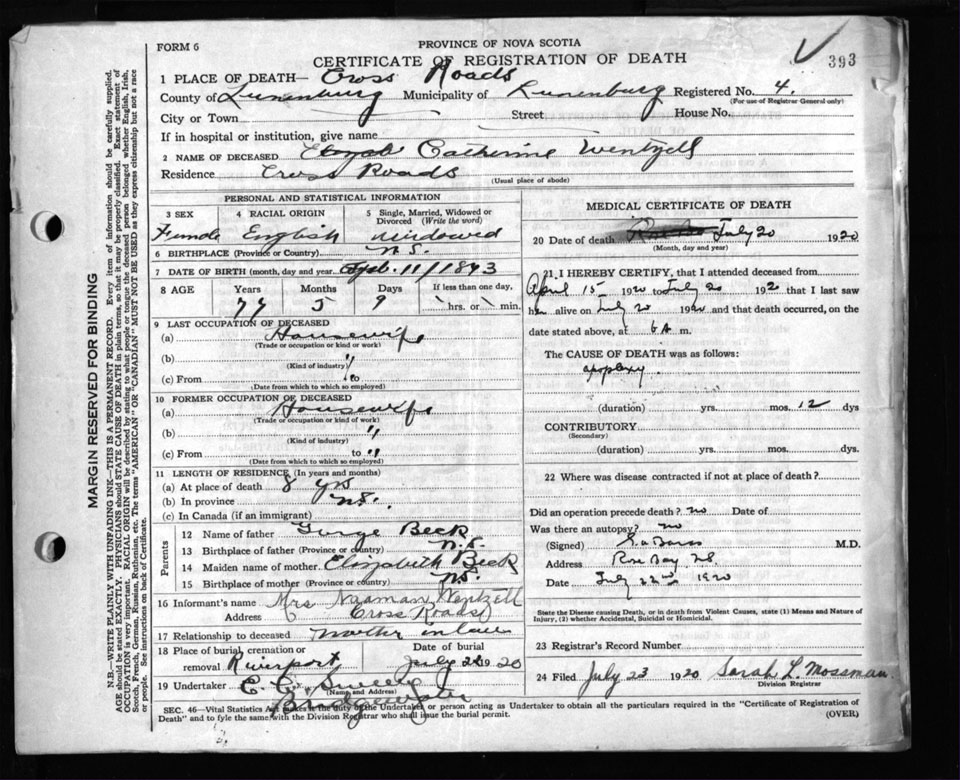 FORM 6
PROVINCE OF NOVA SCOTIA
CERTIFICATE OF REGISTRATION OF DEATH
393
1 PLACE OF DEATH— Cross Roads
County of Lunenburg Municipality of Lunenburg Registered No. 4.
(For use of Registrar General only)
City or Town Street House No.
If in hospital or institution, give name
2 NAME OF DECEASED Catherine Wentzell
Residence Cross Roads
(Usual place of abode)
PERSONAL AND STATISTICAL INFORMATION
3 SEX 4 RACIAL ORIGIN 5 Single, Married, Widowed or Divorced (Write the word)
Female English widowed
6 BIRTHPLACE (Province or Country) N.S.
7 DATE OF BIRTH (month, day and year) 11/1843
8 AGE Years Months Days If less than one day,
77 5 9 hrs. or min.
9 LAST OCCUPATION OF DECEASED
(a) Housewife
(Trade or occupation or kind or work)
(b) "
(Kind of industry)
(c) From to
(Date from which to which so employed)
10 FORMER OCCUPATION OF DECEASED
(a) Housewife
(Trade or occupation or kind of work)
(b) "
(Kind of industry)
(c) From to "
(Date from which to which so employed)
11 LENGTH OF RESIDENCE (In years and months)
(a) At place of death 8 yrs
(b) In province N.S.
(c) In Canada (if an immigrant)
Parents
12 Name of father George Beck
13 Birthplace of father (Province or country) N.S.
14 Maiden name of mother Elizabeth Beck
15 Birthplace of mother (Province or country) N.S.
16 Informant's name Mrs Naaman Wentzell
Address Cross Roads
17 Relationship to deceased mother in law
18 Place of burial, cremation or removal Riverport Date of burial July 22 1920
19 Undertaker
(Name and Address)
MEDICAL CERTIFICATE OF DEATH
20 Date of death July 20 1920
(Month, day and year)
21. I HEREBY CERTIFY, that I attended deceased from
April 15 1920 to July 20 192 that I last saw
her alive on July 20 1920 and that death occurred, on the
date stated above, at 6 A m.
The CAUSE OF DEATH was as follows:
apoplexy
(duration) yrs. mos. 12 dys
CONTRIBUTORY
(Secondary)
(duration) yrs. mos. dys.
22 Where was disease contracted if not at place of death?
Did an operation precede death? no Date of
Was there an autopsy? no
(Signed) M.D.
Address Rose Bay, N.S.
Date July 22nd 1920
State the Disease causing Death, or in death from Violent Causes, state (1) Means and Nature of Injury, (2) whether Accidental, Suicidal or Homicidal.
23 Registrar's Record Number
24 Filed July 23 1920 Sarah L Mossman
Division Registrar
SEC. 46—Vital Statistics Act the duty of the Undertaker or person acting as Undertaker to obtain all the particulars required in the "Certificate of Registration of
Death" and to fyle the same with the Division Registrar who shall issue the burial permit.
(OVER)
MARGIN RESERVED FOR BINDING
N.B.—WRITE PLAINLY WITH UNFADING INK—THIS IS A PERMANENT RECORD. Every item of information should be carefully supplied.
AGE should be stated EXACTLY. PHYSICIANS should STATE CAUSE OF DEATH in plain terms, so that it may be properly classified. Exact statement of
OCCUPATION is very important. RACIAL ORIGIN will be described by stating to what people or tongue the deceased person belonged whether English, Irish,
Scotch, French, German, Russian, Ruthenian, etc. The terms "AMERICAN" OR "CANADIAN" MUST NOT BE USED as they express citizenship but not a race
or people. See instructions on back of Certificate.